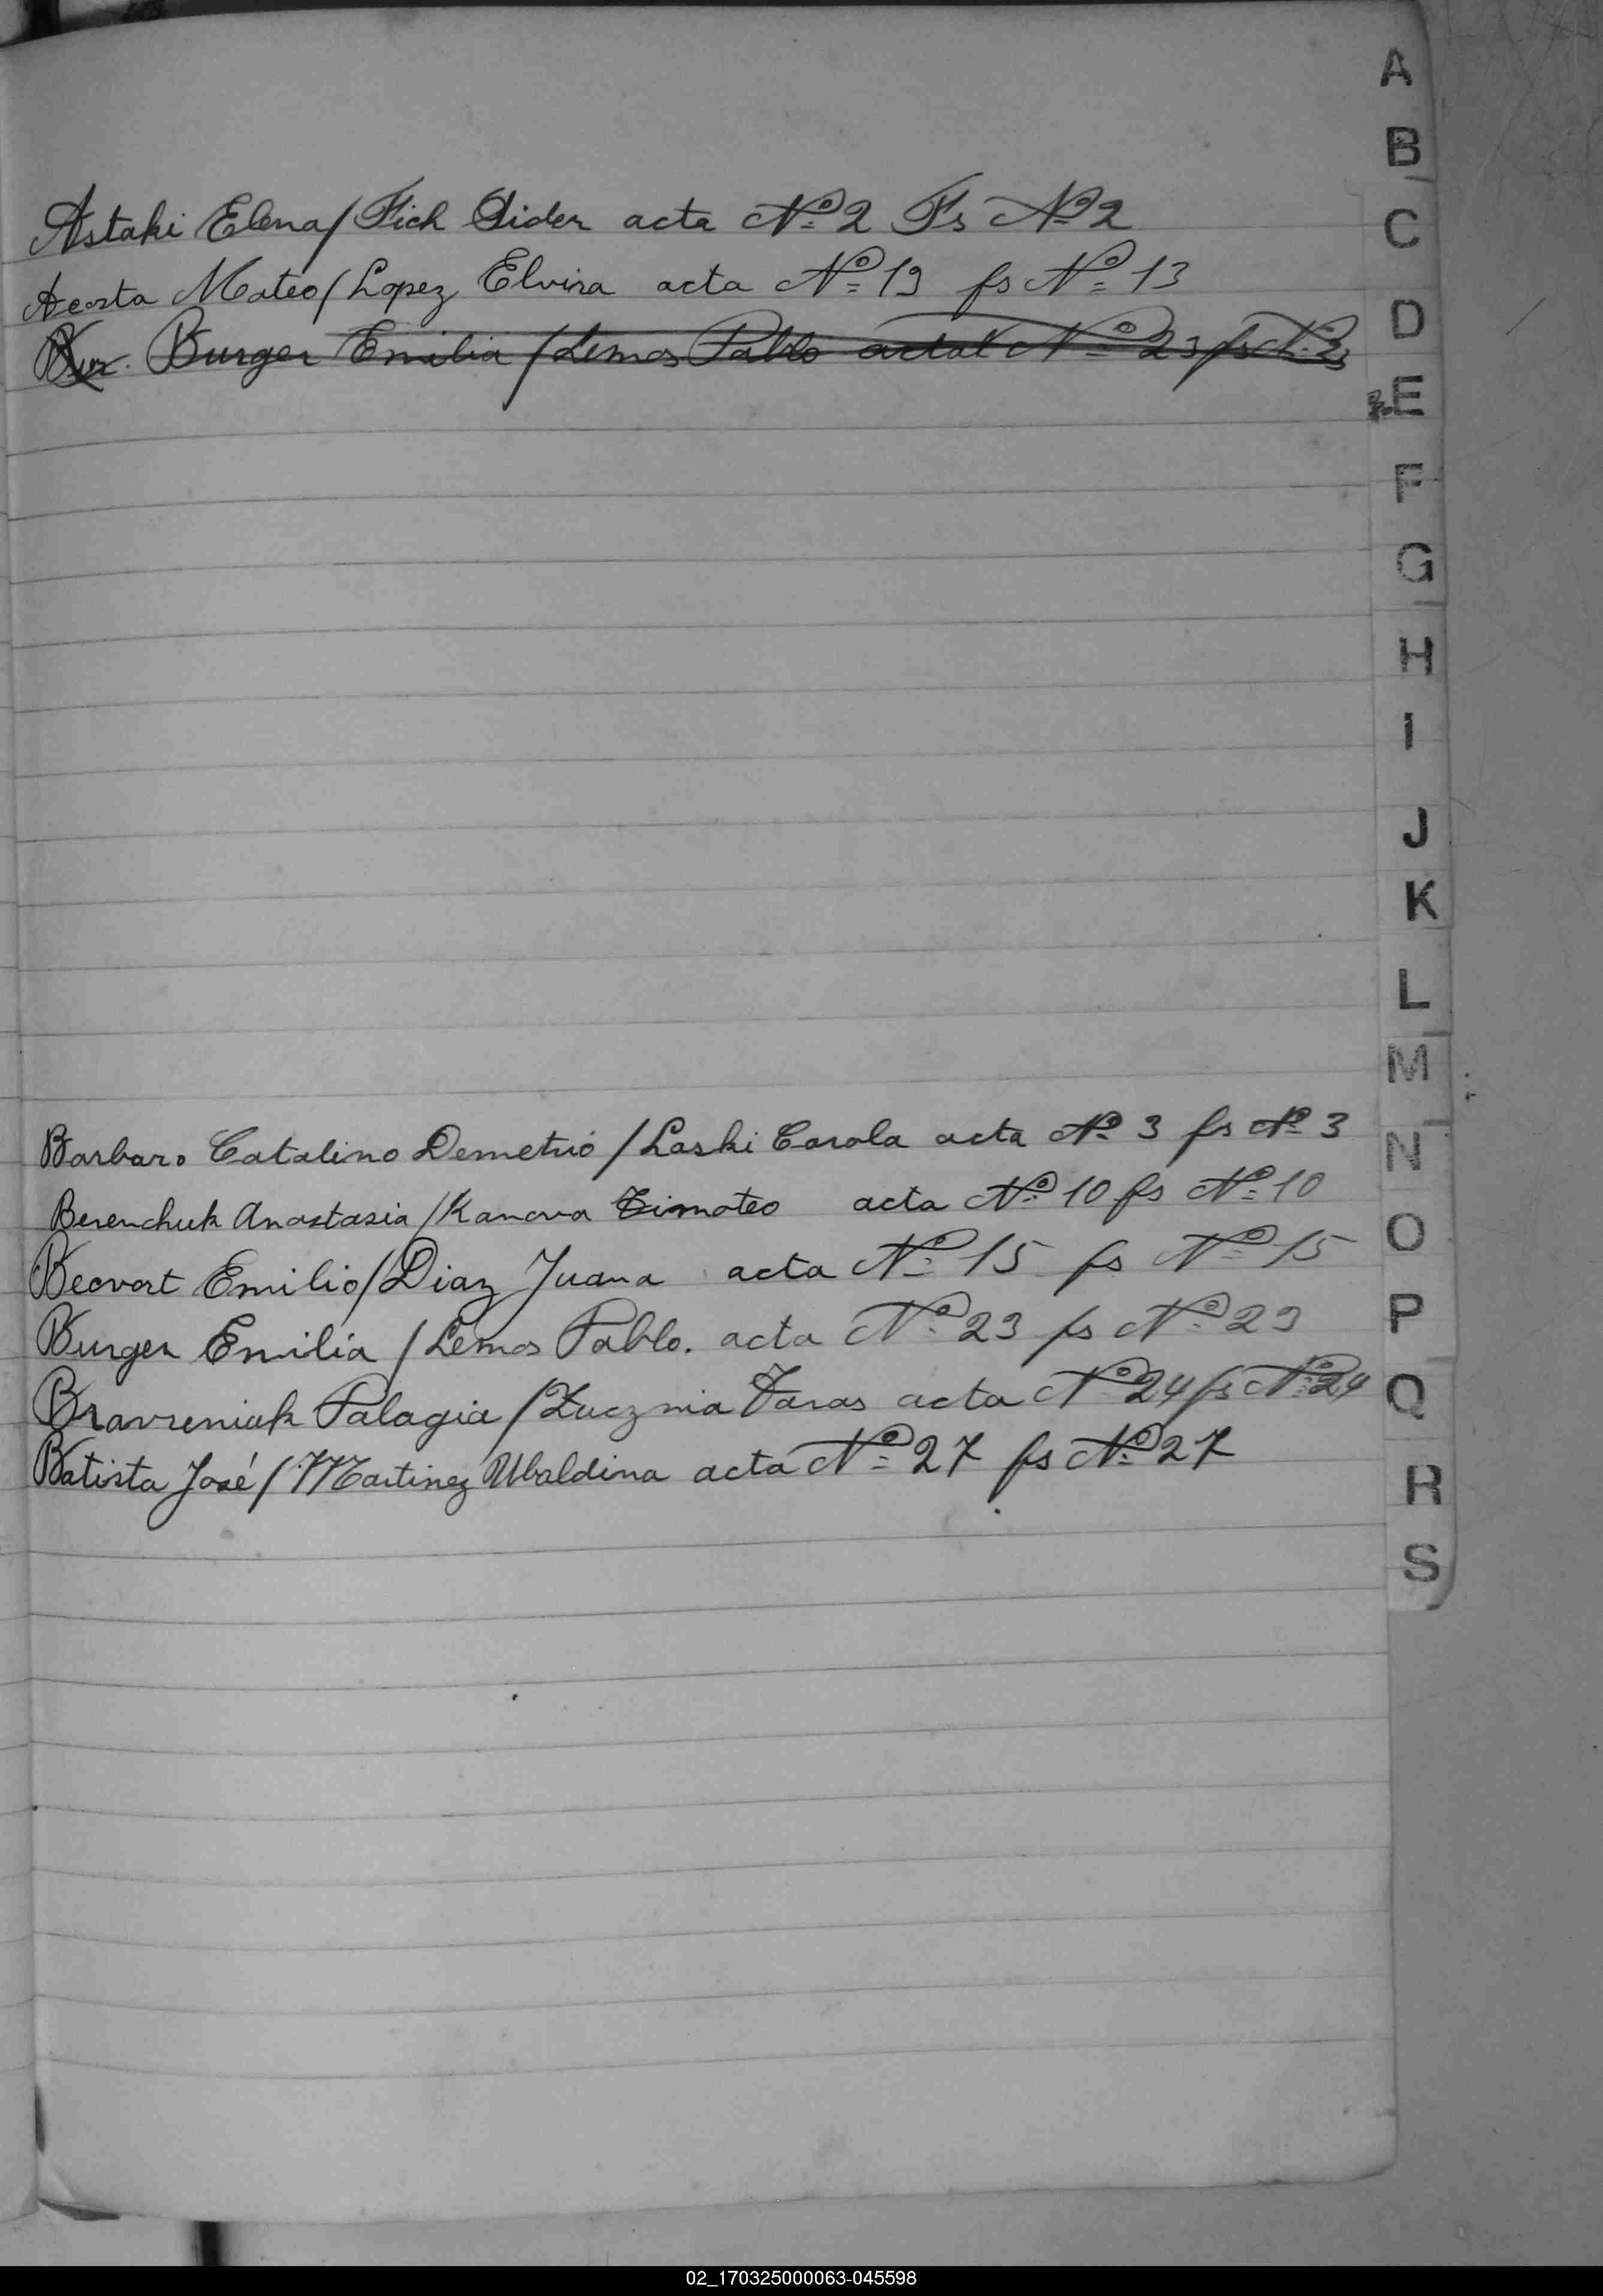 Astaki Elena / Fich Sider acta Nº 2 Fs Nº 2
Acosta Mateo / Lopez Elvira acta Nº 13 fs Nº 13
Bur. Burger Emilia / Lemos Pablo acta Nº 23 fs Nº 23
Barbaro Catalino Demetrio / Laski Carola acta Nº 3 fs Nº 3
Berenchuk Anastasia / Kanova Timoteo acta Nº 10 fs Nº 10
Becvort Emilio / Diaz Juana acta Nº 15 fs Nº 15
Burger Emilia / Lemos Pablo. acta Nº 23 fs Nº 23
Bravreniak Palagia / Zucznia Taras acta Nº 24 fs Nº 24
Batista José / Martinez Ubaldina acta Nº 27 fs Nº 27
A
B
C
D
E
F
G
H
I
J
K
L
M
N
O
P
Q
R
S
02_170325000063-045598